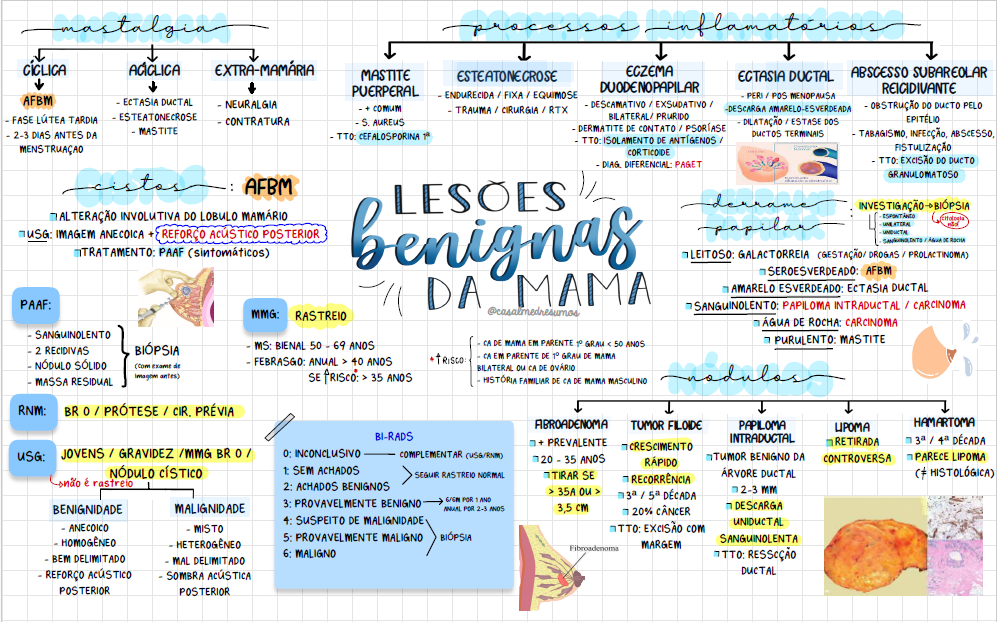 mastalgia
CÍCLICA
AFBM
- FASE LÚTEA TARDIA
- 2-3 DIAS ANTES DA
MENSTRUAÇAO
ACÍCLICA
- ECTASIA DUCTAL
- ESTEATONECROSE
- MASTITE
EXTRA-MAMÁRIA
- NEURALGIA
- CONTRATURA
processos inflamatórios
MASTITE
PUERPERAL
- + COMUM
- S. AUREUS
- TTO: CEFALOSPORINA 1ª
ESTEATONECROSE
- ENDURECIDA / FIXA / EQUIMOSE
- TRAUMA / CIRURGIA / RTX
ECZEMA
DUODENOPAPILAR
- DESCAMATIVO / EXSUDATIVO /
BILATERAL / PRURIDO
- DERMATITE DE CONTATO / PSORÍASE
- TTO: ISOLAMENTO DE ANTÍGENOS /
CORTICOIDE
- DIAG. DIFERENCIAL: PAGET
ECTASIA DUCTAL
- PERI / PÓS MENOPAUSA
-DESCARGA AMARELO-ESVERDEADA
- DILATAÇÃO / ESTASE DOS
DUCTOS TERMINAIS
ABSCESSO SUBAREOLAR
REICIDIVANTE
- OBSTRUÇÃO DO DUCTO PELO
EPITÉLIO
- TABAGISMO, INFECÇÃO, ABSCESSO,
FISTULIZAÇÃO
- TTO: EXCISÃO DO DUCTO
GRANULOMATOSO
cistos : AFBM
ALTERAÇÃO INVOLUTIVA DO LOBULO MAMÁRIO
USG: IMAGEM ANECOICA + REFORÇO ACÚSTICO POSTERIOR
TRATAMENTO: PAAF (sintomáticos)
LESÕES
benignas
DA MAMA
@casalmedresumos
derrame
papilar
: INVESTIGAÇÃO → BIÓPSIA
- ESPONTÂNEO
- UNILATERAL
- UNIDUCTAL
- SANGUINOLENTO / ÁGUA DE ROCHA
citologia
não!
LEITOSO: GALACTORREIA (GESTAÇÃO/ DROGAS / PROLACTINOMA)
SEROESVERDEADO: AFBM
AMARELO ESVERDEADO: ECTASIA DUCTAL
SANGUINOLENTO: PAPILOMA INTRADUCTAL / CARCINOMA
ÁGUA DE ROCHA: CARCINOMA
PURULENTO: MASTITE
PAAF:
- SANGUINOLENTO
- 2 RECIDIVAS
- NÓDULO SÓLIDO
- MASSA RESIDUAL
BIÓPSIA
(Com exame de
imagem antes)
MMG: RASTREIO
- MS: BIENAL 50 - 69 ANOS
- FEBRASGO: ANUAL > 40 ANOS
SE ↑RISCO: > 35 ANOS
*↑RISCO:
- CA DE MAMA EM PARENTE 1º GRAU < 50 ANOS
- CA EM PARENTE DE 1º GRAU DE MAMA
BILATERAL OU CA DE OVÁRIO
- HISTÓRIA FAMILIAR DE CA DE MAMA MASCULINO
RNM: BR 0 / PRÓTESE / CIR. PRÉVIA
USG: JOVENS / GRAVIDEZ /MMG BR 0 /
NÓDULO CÍSTICO
não é rastreio
BENIGNIDADE
- ANECOICO
- HOMOGÊNEO
- BEM DELIMITADO
- REFORÇO ACÚSTICO
POSTERIOR
MALIGNIDADE
- MISTO
- HETEROGÊNEO
- MAL DELIMITADO
- SOMBRA ACÚSTICA
POSTERIOR
BI-RADS
0: INCONCLUSIVO COMPLEMENTAR (USG/RNM)
1: SEM ACHADOS
2: ACHADOS BENIGNOS
SEGUIR RASTREIO NORMAL
3: PROVAVELMENTE BENIGNO
6/6M POR 1 ANO
ANUAL POR 2-3 ANOS
4: SUSPEITO DE MALIGNIDADE
5: PROVAVELMENTE MALIGNO
6: MALIGNO
BIÓPSIA
nódulos
FIBROADENOMA
+ PREVALENTE
20 - 35 ANOS
TIRAR SE
> 35A OU >
3,5 CM
Fibroadenoma
TUMOR FILOIDE
CRESCIMENTO
RÁPIDO
RECORRÊNCIA
3ª / 5ª DÉCADA
20% CÂNCER
TTO: EXCISÃO COM
MARGEM
PAPILOMA
INTRADUCTAL
TUMOR BENIGNO DA
ÁRVORE DUCTAL
2-3 MM
DESCARGA
UNIDUCTAL
SANGUINOLENTA
TTO: RESSCÇÃO
DUCTAL
LIPOMA
RETIRADA
CONTROVERSA
HAMARTOMA
3ª / 4ª DÉCADA
PARECE LIPOMA
(≠ HISTOLÓGICA)